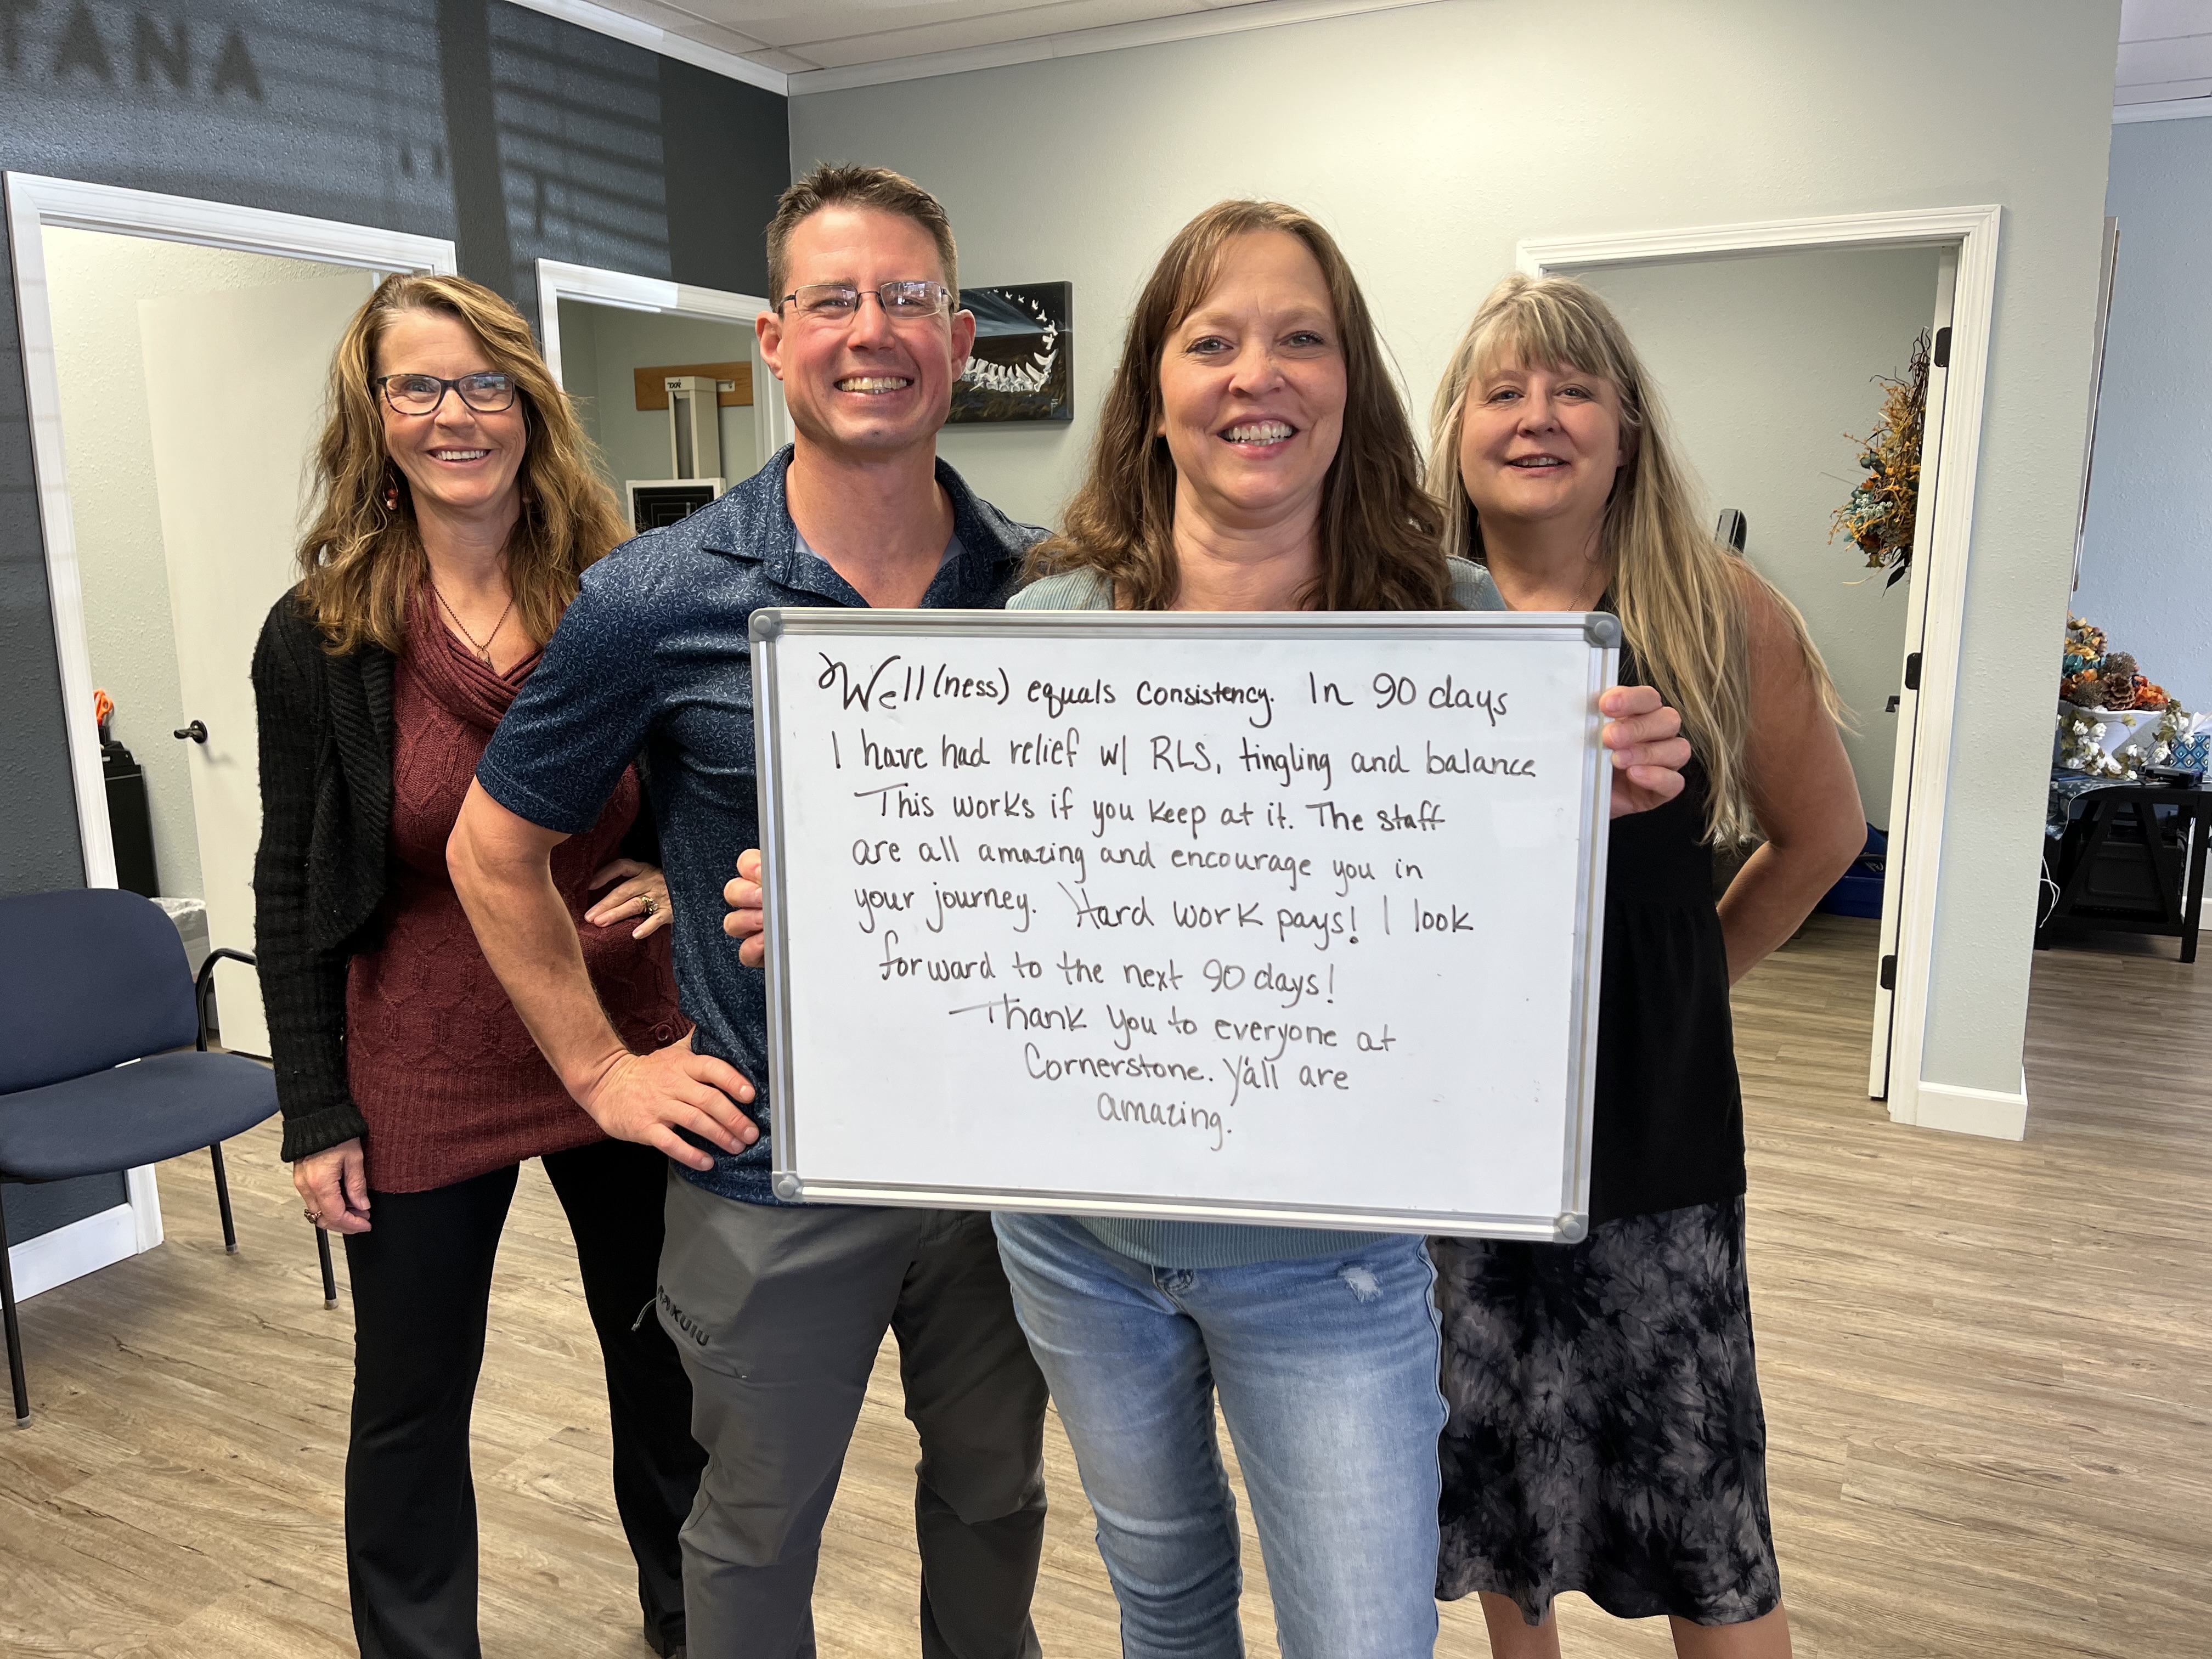 TANA
Well(ness) equals consistency. In 90 days
I have had relief w/ RLS, tingling and balance
This works if you keep at it. The staff
are all amazing and encourage you in
your journey. Hard work pays! I look
forward to the next 90 days!
Thank you to everyone at
Cornerstone. Y'all are
amazing.
KUIU